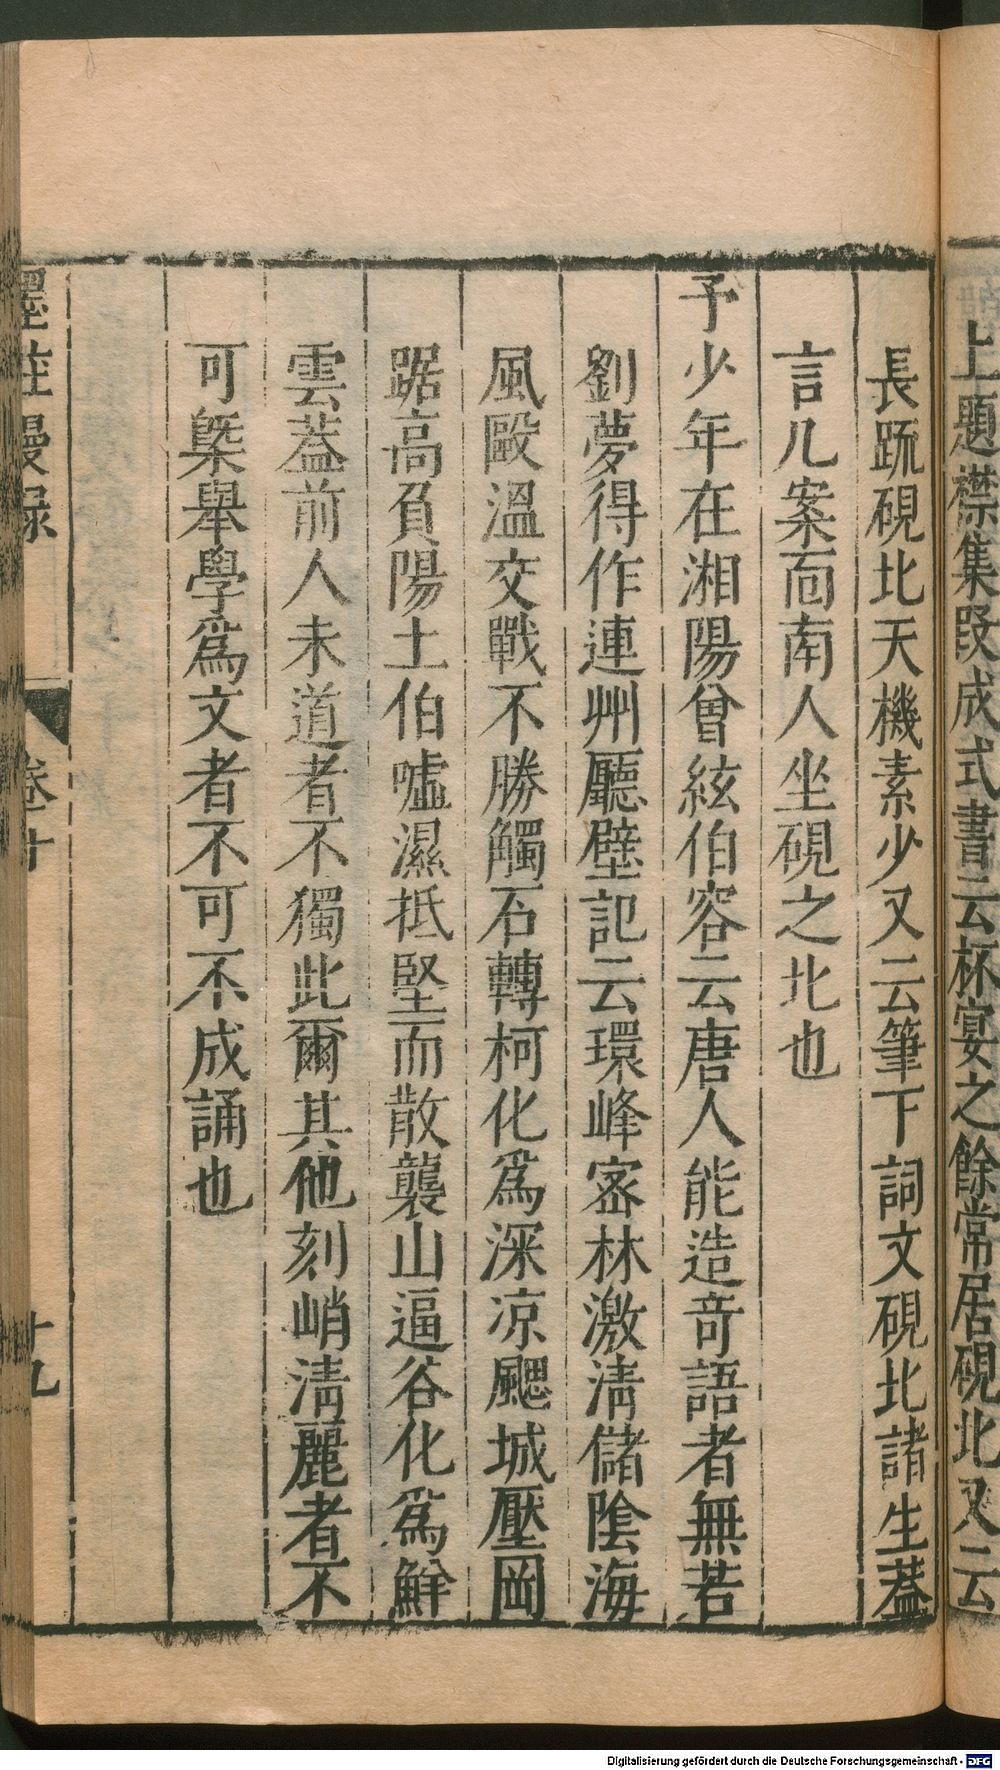 上題襟集段成式書云杯宴之餘常居硯北又云
長䟽硯北天機素少又云筆下詞文硯北諸生葢
言几案面南人坐硯之北也
予少年在湘陽曾絃伯容云唐人能造竒語者無若
劉夢得作連州廳壁記云環峰宻林激淸儲陰海
風毆溫交戰不勝觸石轉柯化爲深凉颸城壓岡
踞高負陽土伯噓濕抵堅而散襲山逼谷化爲鮮
雲葢前人未道者不獨此爾其他刻峭淸麗者不
可槩舉學爲文者不可不成誦也
墨莊漫録 卷十 十九
Digitalisierung gefördert durch die Deutsche Forschungsgemeinschaft - DFG